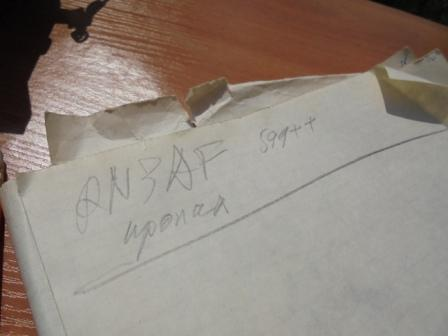 RN3AF 599++
пропал